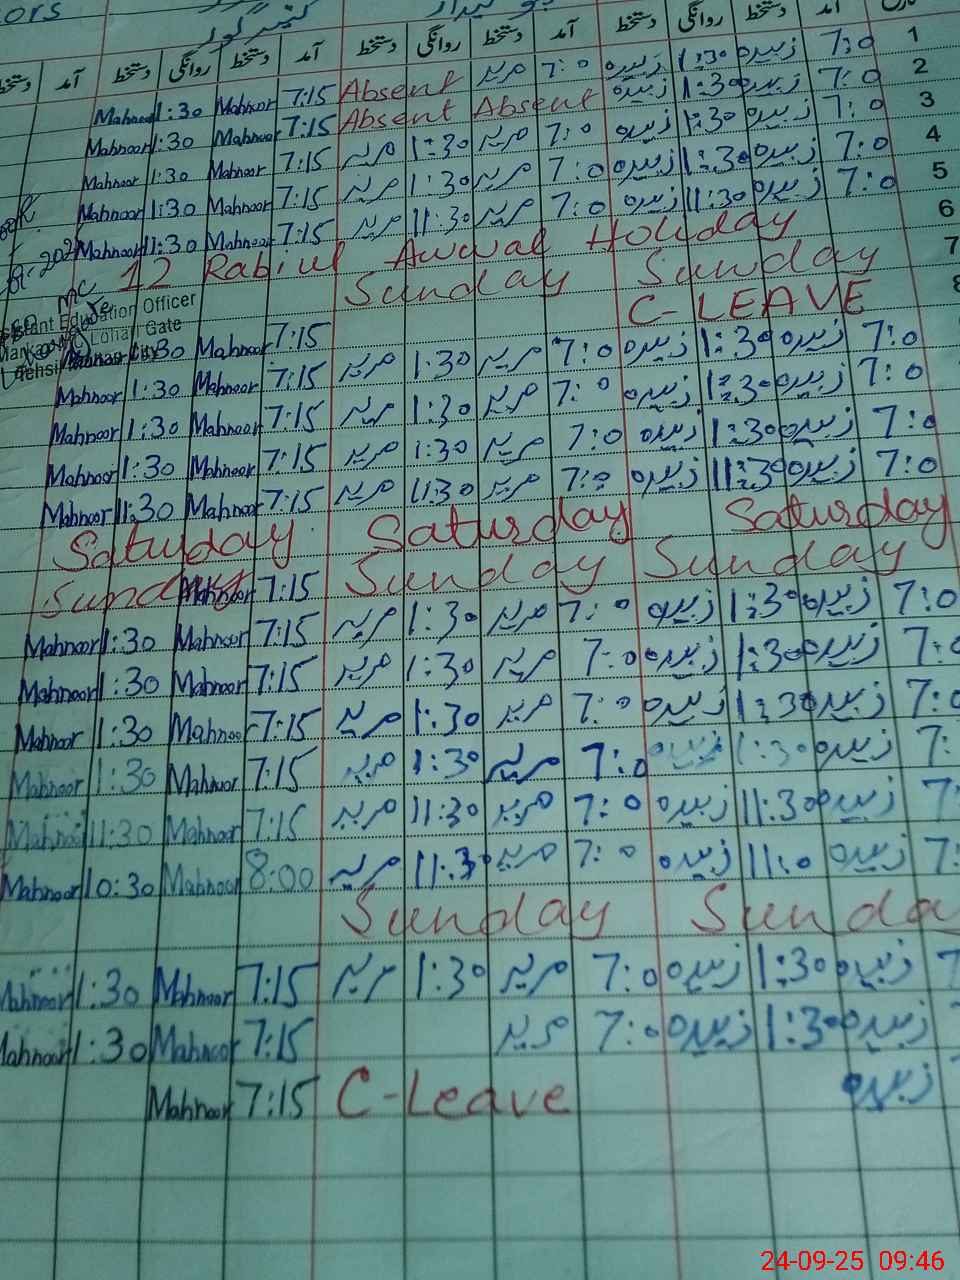 آمد دستخط روانگی دستخط آمد دستخط روانگی دستخط آمد دستخط روانگی دستخط آمد دستخط
1 7:0 زبیدہ 1:30 زبیدہ 7:0 مریم Absent 7:15 Mahnoor 1:30 Mahnoor
2 7:0 زبیدہ 1:30 زبیدہ Absent Absent 7:15 Mahnoor 1:30 Mahnoor
3 7:0 زبیدہ 1:30 زبیدہ 7:0 مریم 1:30 مریم 7:15 Mahnoor 1:30 Mahnoor
4 7:0 زبیدہ 1:30 زبیدہ 7:0 مریم 1:30 مریم 7:15 Mahnoor 1:30 Mahnoor
5 7:0 زبیدہ 11:30 زبیدہ 7:0 مریم 11:30 مریم 7:15 Mahnoor 11:30 Mahnoor
6 12 Rabiul Awwal Holiday
7 Sunday Sunday
8 C-LEAVE
Education Officer
Lohari Gate
7:0 زبیدہ 1:30 زبیدہ 7:0 مریم 1:30 مریم 7:15 Mahnoor 1:30
7:0 زبیدہ 1:30 زبیدہ 7:0 مریم 1:30 مریم 7:15 Mahnoor 1:30 Mahnoor
7:0 زبیدہ 1:30 زبیدہ 7:0 مریم 1:30 مریم 7:15 Mahnoor 1:30 Mahnoor
7:0 زبیدہ 11:30 زبیدہ 7:0 مریم 11:30 مریم 7:15 Mahnoor 1:30 Mahnoor
7:15 Mahnoor 11:30 Mahnoor
Saturday Saturday Satuday
Sunday Sunday Sunday
7:15 Mahnoor
7:0 زبیدہ 1:30 زبیدہ 7:0 مریم 1:30 مریم 7:15 Mahnoor 1:30 Mahnoor
7:0 زبیدہ 1:30 زبیدہ 7:0 مریم 1:30 مریم 7:15 Mahnoor 1:30 Mahnoor
7:0 زبیدہ 1:30 زبیدہ 7:0 مریم 1:30 مریم 7:15 Mahnoor 1:30 Mahnoor
7: زبیدہ 1:30 زبیدہ 7:0 مریم 1:30 مریم 7:15 Mahnoor 1:30 Mahnoor
7: زبیدہ 11:30 زبیدہ 7:0 مریم 11:30 مریم 7:15 Mahnoor 11:30
7: زبیدہ 11:0 زبیدہ 7:0 مریم 11:30 مریم 8:00 Mahnoor 10:30 Mahnoor
Sunda Sunday
7 زبیدہ 1:30 زبیدہ 7:0 مریم 1:30 مریم 7:15 Mahnoor 1:30 Mahnoor
7 زبیدہ 1:30 زبیدہ 7:0 مریم 7:15 Mahnoor 1:30 Mahnoor
زبیدہ C-Leave 7:15 Mahnoor
24-09-25 09:46